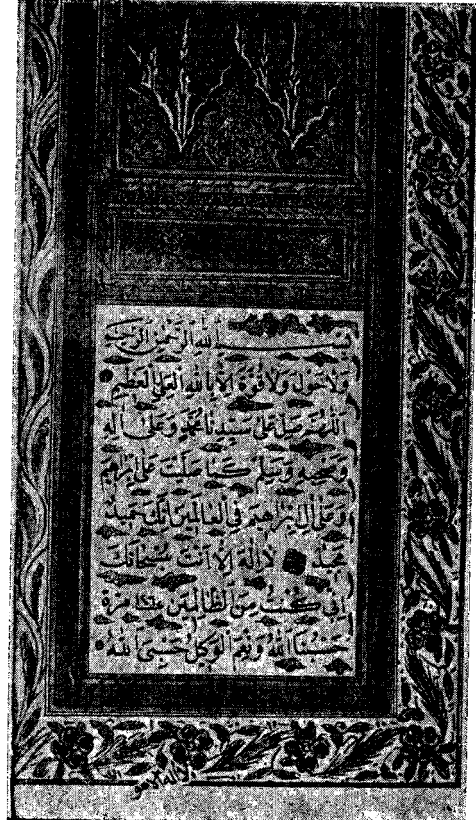 بسم الله الرحمن الرحيم
ولا حول ولا قوة الا بالله العلي العظيم
اللهم صل على سيدنا محمد وعلى آله
وصحبه وسلم كما صليت على ابراهيم
وعلى آل ابراهيم في العالمين انك حميد
مجيد لا اله الا انت سبحانك
اني كنت من الظالمين مرة
حسبنا الله ونعم الوكيل حسبي الله